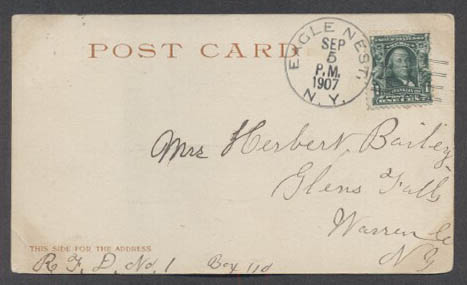 POST CARD
EAGLE NEST.
SEP
5
P.M.
1907
N.Y.
FRANKLIN
ONE CENT
Mrs Herbert Bailey
Glens Falls
Warren Co
N Y
THIS SIDE FOR THE ADDRESS
R. F. D. No. 1 Box 110